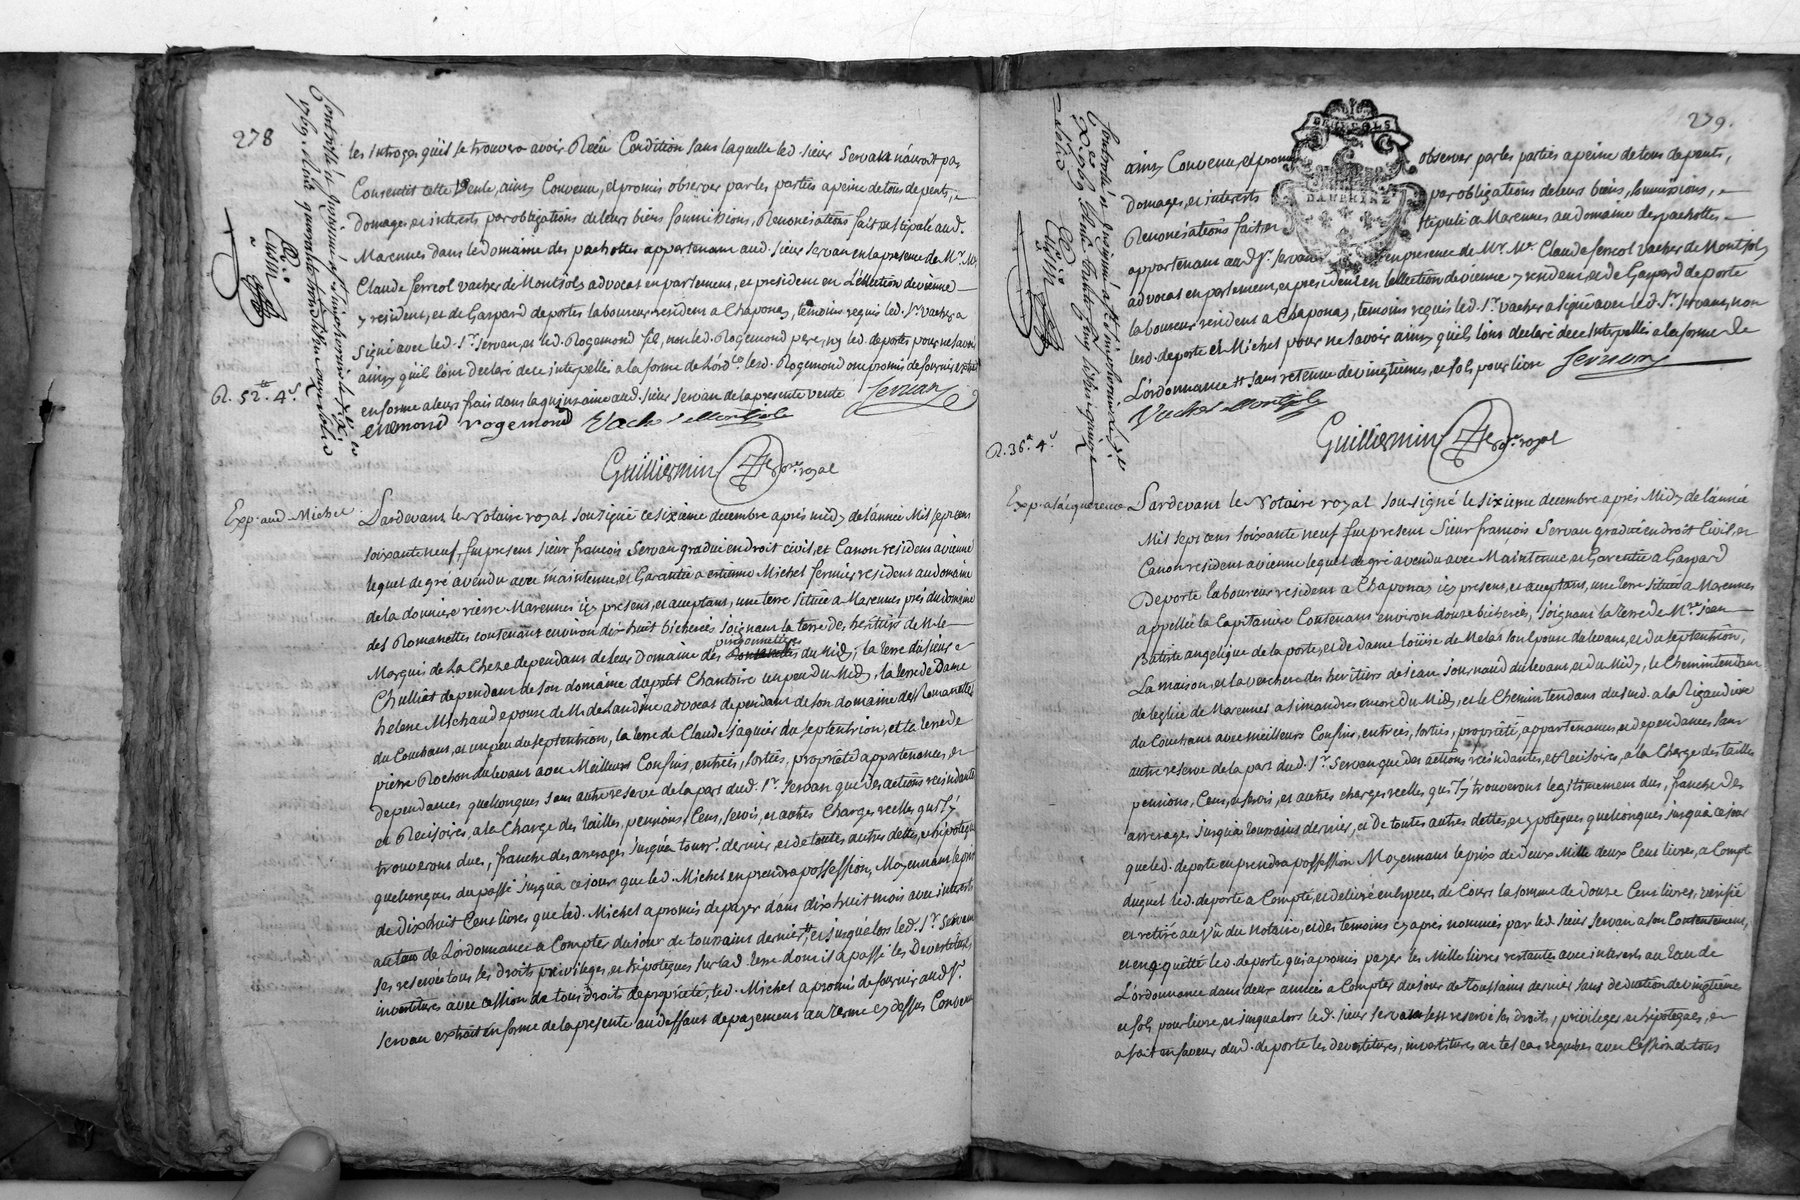 278
les Introges qu'il se trouvera avoir Reçu Condition sans laquelle led. sieur Servan n'auroit pas
Consentit cette Vente, ainsy Convenu, et promis observer par les parties a peine de tous depents,
domages et interests par obligations de leurs biens soumissions, Renonciations fait et stipulé aud.
Marennes dans le domaine des pachottes appartenant aud. sieur servan en la presence de Mr. Me.
Claude ferreol vacher de Montjols advocat en parlement, et president en L'election de vienne
y resident, et de Gaspard de portes laboureur resident a Chaponay, temoins requis led. Sr. vacher a
signé avec led. Sr. Servan, et led. Rogemond fils, non led. Rogemond pere, ny led. de portes pour ne savoir
ainsy qu'ils l'ont declaré de ce interpellés a la forme de L'ord.ce lesd. Rogemond ont promis de fournir extrait
en forme a leurs frais dans la quinzaine aud. sieur Servan de la presente vente Servan
enemond rogemond Vacher de Montjols
R. 52.tt 4.s
Guilliermin No.re royal
Exp. aud. Michel
Pardevant le Notaire royal sousigné ce sixieme decembre après midy de l'année Mil sept cens
soixante neuf, fut present sieur françois Servan gradué en droit civil, et Canon resident a vienne
lequel de gré a vendu avec maintenue, et Garantie a estienne Michel fermier resident au domaine
de la donniere rierre Marennes icy present, et aceptant, une terre située a Marennes près du domaine
des Romanettes contenant environ dix huit bicherées joignant la terre des heritiers de M. le
Marquis de La Cheze dependant de leur domaine des du Midy, la terre du sieur
Chulliat dependant de son domaine du petit Chantoire un peu du Midy, la terre de Dame
helene Michaud epouse de M. de Landine advocat dependant de son domaine des Romanettes
du Couchant, et un peu du septentrion, la terre de Claude Jaquier du septentrion, et la terre de
pierre Rochon du levant avec Meilleurs Confins, entrées, sorties, proprieté appartenances, et
dependances quelconques sans autre reserve de la part dud. Sr. servan que des actions rescindantes
et Recisoires, a la Charge des tailles, pensions, Cens, servis, et autres Charges reelles qui s'y
trouveront dues, franche des arrerages jusqu'a touss.t dernier, et de toutes autres dettes, et hipoteques
quelconques du passé jusqu'a ce jour que led. Michel en prendra possession, Moyennant le prix
de dix huit Cens livres que led. Michel a promis de payer dans dix huit mois avec interests
au taux de L'ordonnance a Compter du jour de toussaint dernier, et jusqu'alors led. Sr. Servan
se reserve tous les droits privileges, et hipoteques sur lad. terre dont il a passé les Devestitures,
investitures avec cession de tous droits de proprieté, led. Michel a promis de fournir aud. Sr.
servan extrait en forme de la presente au deffaut de payement au terme cy dessus Convenu
279.
ainsy Convenu, et promis observer par les parties a peine de tous depents,
domages, et interests par obligations de leurs biens, soumissions,
Renonciations fait et stipulé a Marennes au domaine des pachottes
appartenant aud. Sr. servan en presence de Mr. Me. Claude ferreol vacher de Montjols
advocat en parlement, et president en L'election de vienne y resident, et de Gaspard de porte
laboureur resident a Chaponay, temoins requis led. Sr. vacher a signé avec led. Sr. Servan, non
lesd. de porte et Michel pour ne savoir ainsy qu'ils l'ont declaré de ce Interpellés a la forme de
L'ordonnance sans retenue de vingtiemes, et sols pour livre Servan
Vacher de Montjols
R. 36.tt 4.s
Guilliermin No.re royal
Exp. a l'aquereur
Pardevant le Notaire royal sousigné le sixieme decembre après Midy de l'année
Mil sept cens soixante neuf fut present sieur françois Servan gradué en droit Civil, et
Canon resident a vienne lequel de gré a vendu avec Maintenue et Garentie a Gaspard
Deporte laboureur resident a Chaponay icy present, et aceptant, une terre située a Marennes
appellée la Capitaniere Contenant environ douze bicherées, joignant la terre de Mre. Jean
Batiste angelique de la porte, et de dame louise de Melat son Epouse du levant, et du septentrion,
La maison, et la verchere des heritiers de jean Journaud du levant, et du Midy, le Chemin tendant
de l'eglise de Marennes a simandres encore du Midy, et le Chemin tendant du sud. a la Rigaudiere
du Couchant avec meilleurs Confins, entrées, sorties, proprieté, appartenances, et dependances sans
autre reserve de la part dud. Sr. Servan que des actions rescindantes, et Recisoires, a la Charge des tailles
pensions, Cens, et servis, et autres charges reelles qui s'y trouveront legitimement dues, franche des
arrerages jusqu'a toussaint dernier, et de toutes autres dettes, et ypoteques quelconques jusqu'a ce jour
que led. deporte en prendra possession Moyennant le prix de deux Mille deux Cens livres, a Compte
duquel led. deporte a Compté, et delivré en especes de Cours la somme de douze Cens livres, verifié
et retiré au vû du notaire, et des temoins cy après nommés par led. sieur servan a son Contentement,
et en quitte led. deporte qui a promis payer les Mille livres restantes avec interests au taux de
L'ordonnance dans deux années a Compter du jour de toussaint dernier sans deduction de vingtieme
et sols pour livre, et jusqu'alors led. sieur servan s'est reservé ses droits, privileges, et hipoteques, et
a fait en faveur dud. deporte les devestitures, investitures en tel cas requises avec Cession de tous